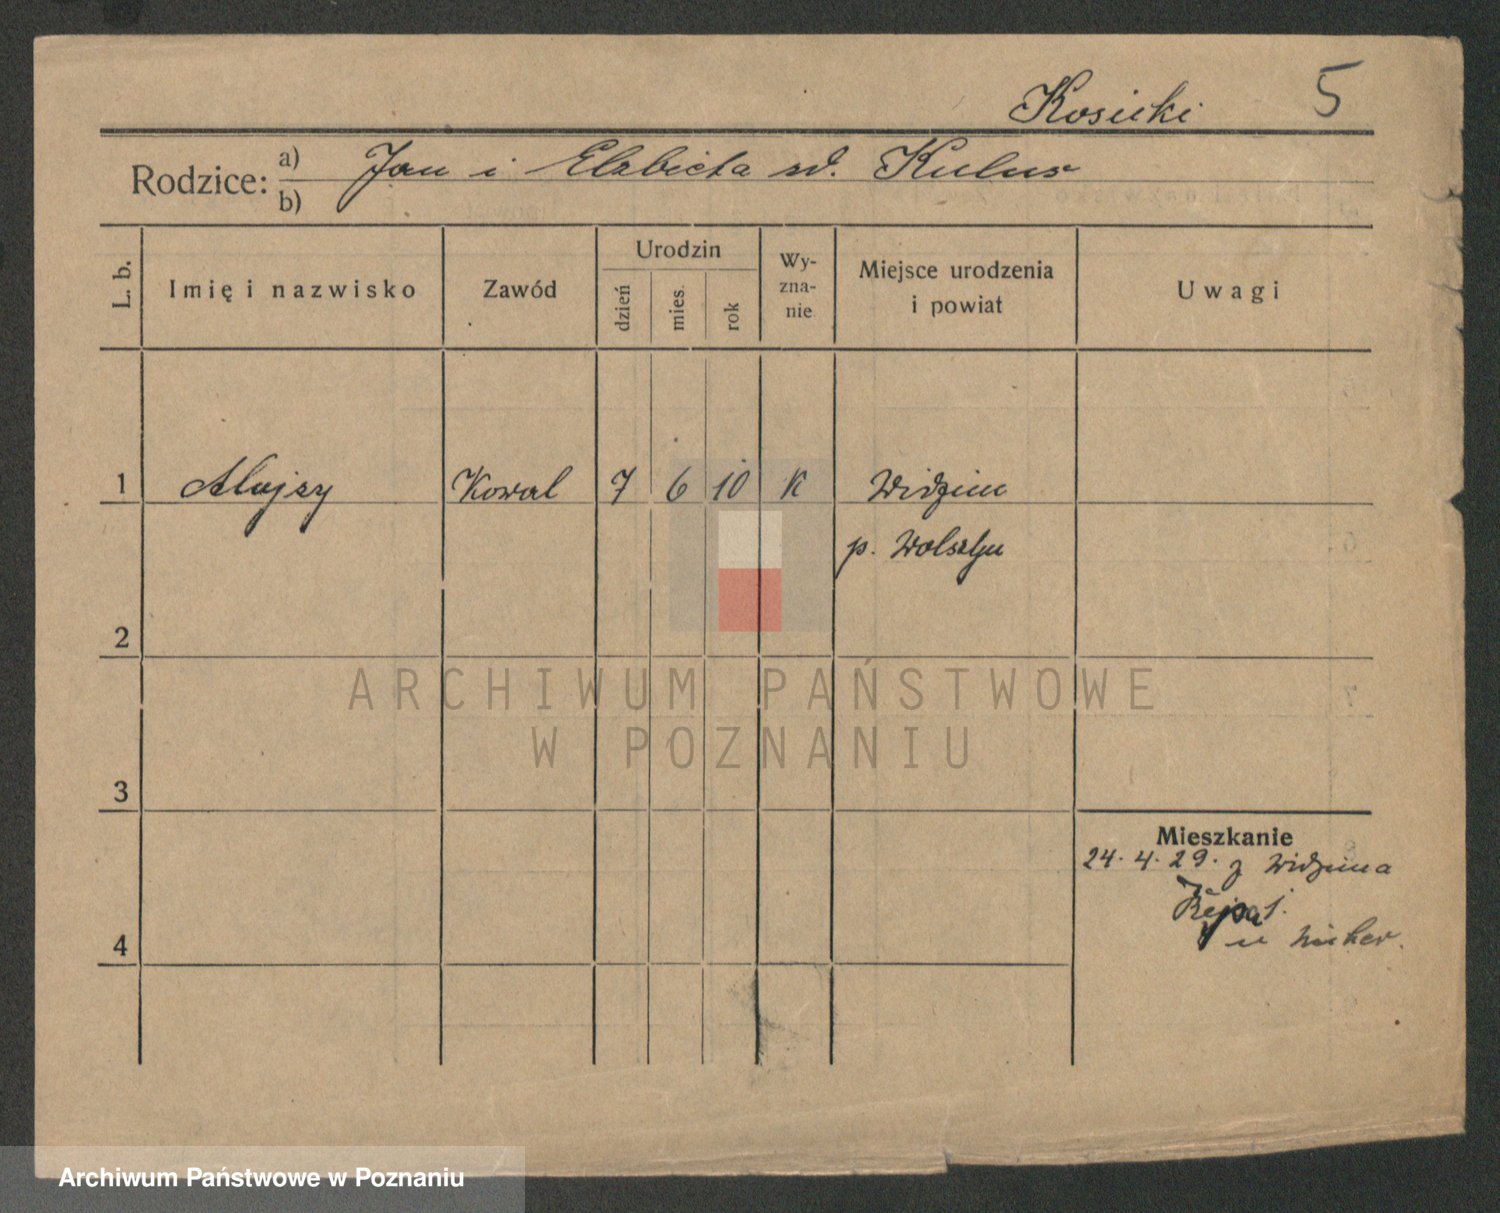 Kosicki 5
Rodzice: a) Jan i Elzbieta zd. Kulus
b)
L. b. Imię i nazwisko Zawód Urodzin dzień mies. rok Wy-zna-nie Miejsce urodzenia i powiat Uwagi
1 Alojzy Kowal 7 6 10 K Widzim
p. Wolsztyn
2
3
4
Mieszkanie
24.4.29. z Widzima
u
ARCHIWUM PAŃSTWOWE
W POZNANIU
Archiwum Państwowe w Poznaniu